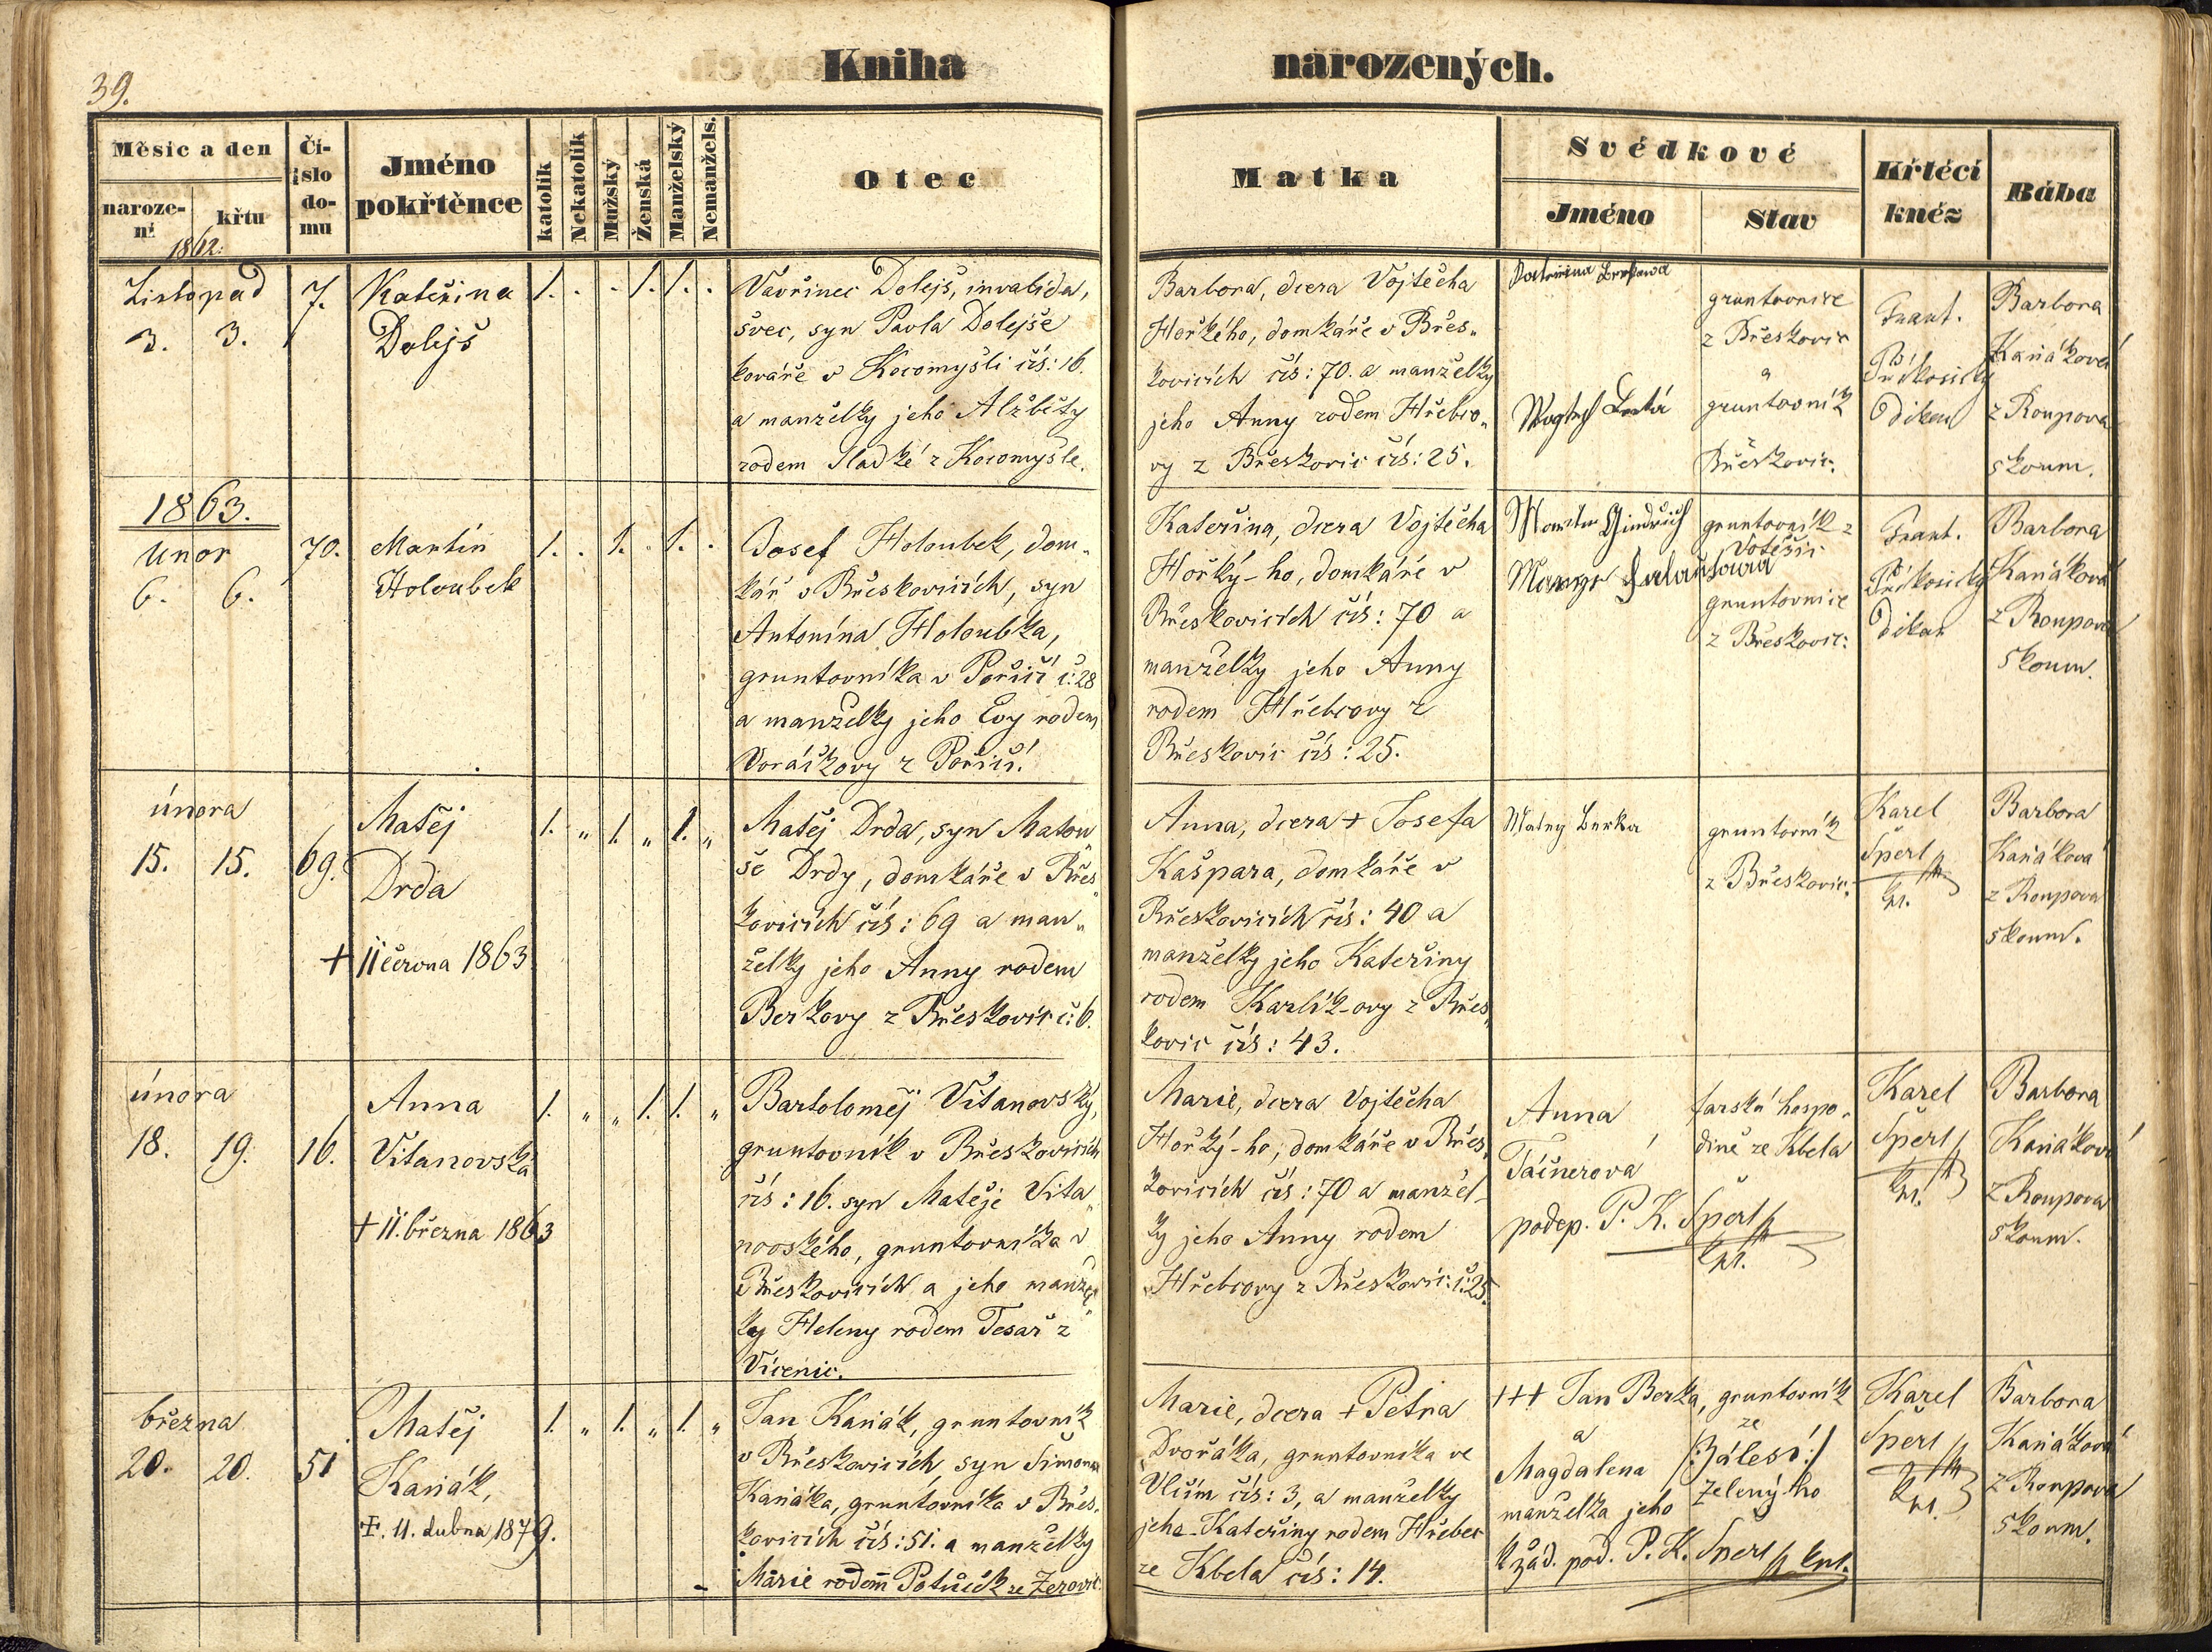 39.
Kniha narozených.
Měsíc a den
narození
křtu
Číslo domu
Jméno pokřtěnce
katolík
Nekatolík
Mužský
Ženská
Manželský
Nemanžels.
Otec
Matka
Svědkové
Jméno
Stav
Křtěcí kněz
Bába
1862.
Listopad
3. 3.
7.
Kateřina
Dolejš
1. . . 1. 1. .
Vavřinec Dolejš, invalida,
švec, syn Pavla Dolejše
kováře v Kocomyšli čís: 16.
a manželky jeho Alžběty
rodem Sladké z Kocomyšle.
Barbora, dcera Vojtěcha
Hořkého, domkáře v Břes„
kovicích čís: 70. a manželky
jeho Anny rodem Hřebco„
vy z Břeskovic čís: 25.
gruntovnice
z Břeskovic
a
gruntovník
Břeskovic.
Frant.
Příkosický
děkan
Barbora
Kaňáková
z Roupova
zkoum.
1863.
Únor
6. 6.
70.
Martin
Holoubek
1. . 1. . 1. .
Josef Holoubek, dom„
kář v Břeskovicích, syn
Antonína Holoubka,
gruntovníka v Poříčí č: 28
a manželky jeho Evy rodem
Voráčkovy z Poříčí.
Kateřina, dcera Vojtěcha
Hořký-ho, domkáře v
Břeskovicích čís: 70 a
manželky jeho Anny
rodem Hřebcovy z
Břeskovic čís: 25.
Martin Jindřich
gruntovník z
Votěšic
gruntovnice
z Břeskovic:
Frant.
Příkosický
děkan
Barbora
Kaňáková
z Roupova
zkoum.
února
15. 15.
69.
Matěj
Drda
+ 11 června 1863
1. „ 1. „ 1. „
Matěj Drda, syn Matou„
še Drdy, domkáře v Břes„
kovicích čís: 69 a man„
želky jeho Anny rodem
Berkovy z Břeskovic č: 6.
Anna, dcera + Josefa
Kašpara, domkáře v
Břeskovicích čís: 40 a
manželky jeho Kateřiny
rodem Karlík-ovy z Břes„
kovic čís: 43.
Matěj Berka
gruntovník
z Břeskovic.
Karel
Šperl
kpl.
Barbora
Kaňáková
z Roupova
zkoum.
února
18. 19.
16.
Anna
Vitanovská
+ 11. března 1863
1. „ „ 1. 1. „
Bartoloměj Vitanovský,
gruntovník v Břeskovicích
čís: 16. syn Matěje Vita„
novského, gruntovníka v
Břeskovicích a jeho manžel„
ky Heleny rodem Tesař z
Vícenic.
Marie, dcera Vojtěcha
Hořký-ho, domkáře v Břes„
kovicích čís: 70 a manžel-
ky jeho Anny rodem
Hřebcovy z Břeskovic: č: 25.
Anna
Tačnerová
farská hospo„
dině ze Kbela
podep. P. K. Šperl
kpl.
Karel
Šperl
kpl.
Barbora
Kaňáková
z Roupova
zkoum.
března
20. 20.
51
Matěj
Kaňák,
+. 11. dubna, 1879.
1. „ 1. „ 1. „
Jan Kaňák, gruntovník
v Břeskovicích syn Šimona
Kaňáka, gruntovníka v Břes„
kovicích čís: 51. a manželky
Marie rodem Potůček ze Žerovic
Marie, dcera + Petra
Dvořáka, gruntovníka ve
Vlčím čís: 3, a manželky
jeho Kateřiny rodem Hřebec
ze Kbela čís: 14.
+++ Jan Berka, gruntovník
a
ze
Magdalena
/:Zálesí:/
manželka jeho
Zelenýho
k žád. pod. P. K. Šperl kpl.
Karel
Šperl
kpl.
Barbora
Kaňáková
z Roupova
zkoum.